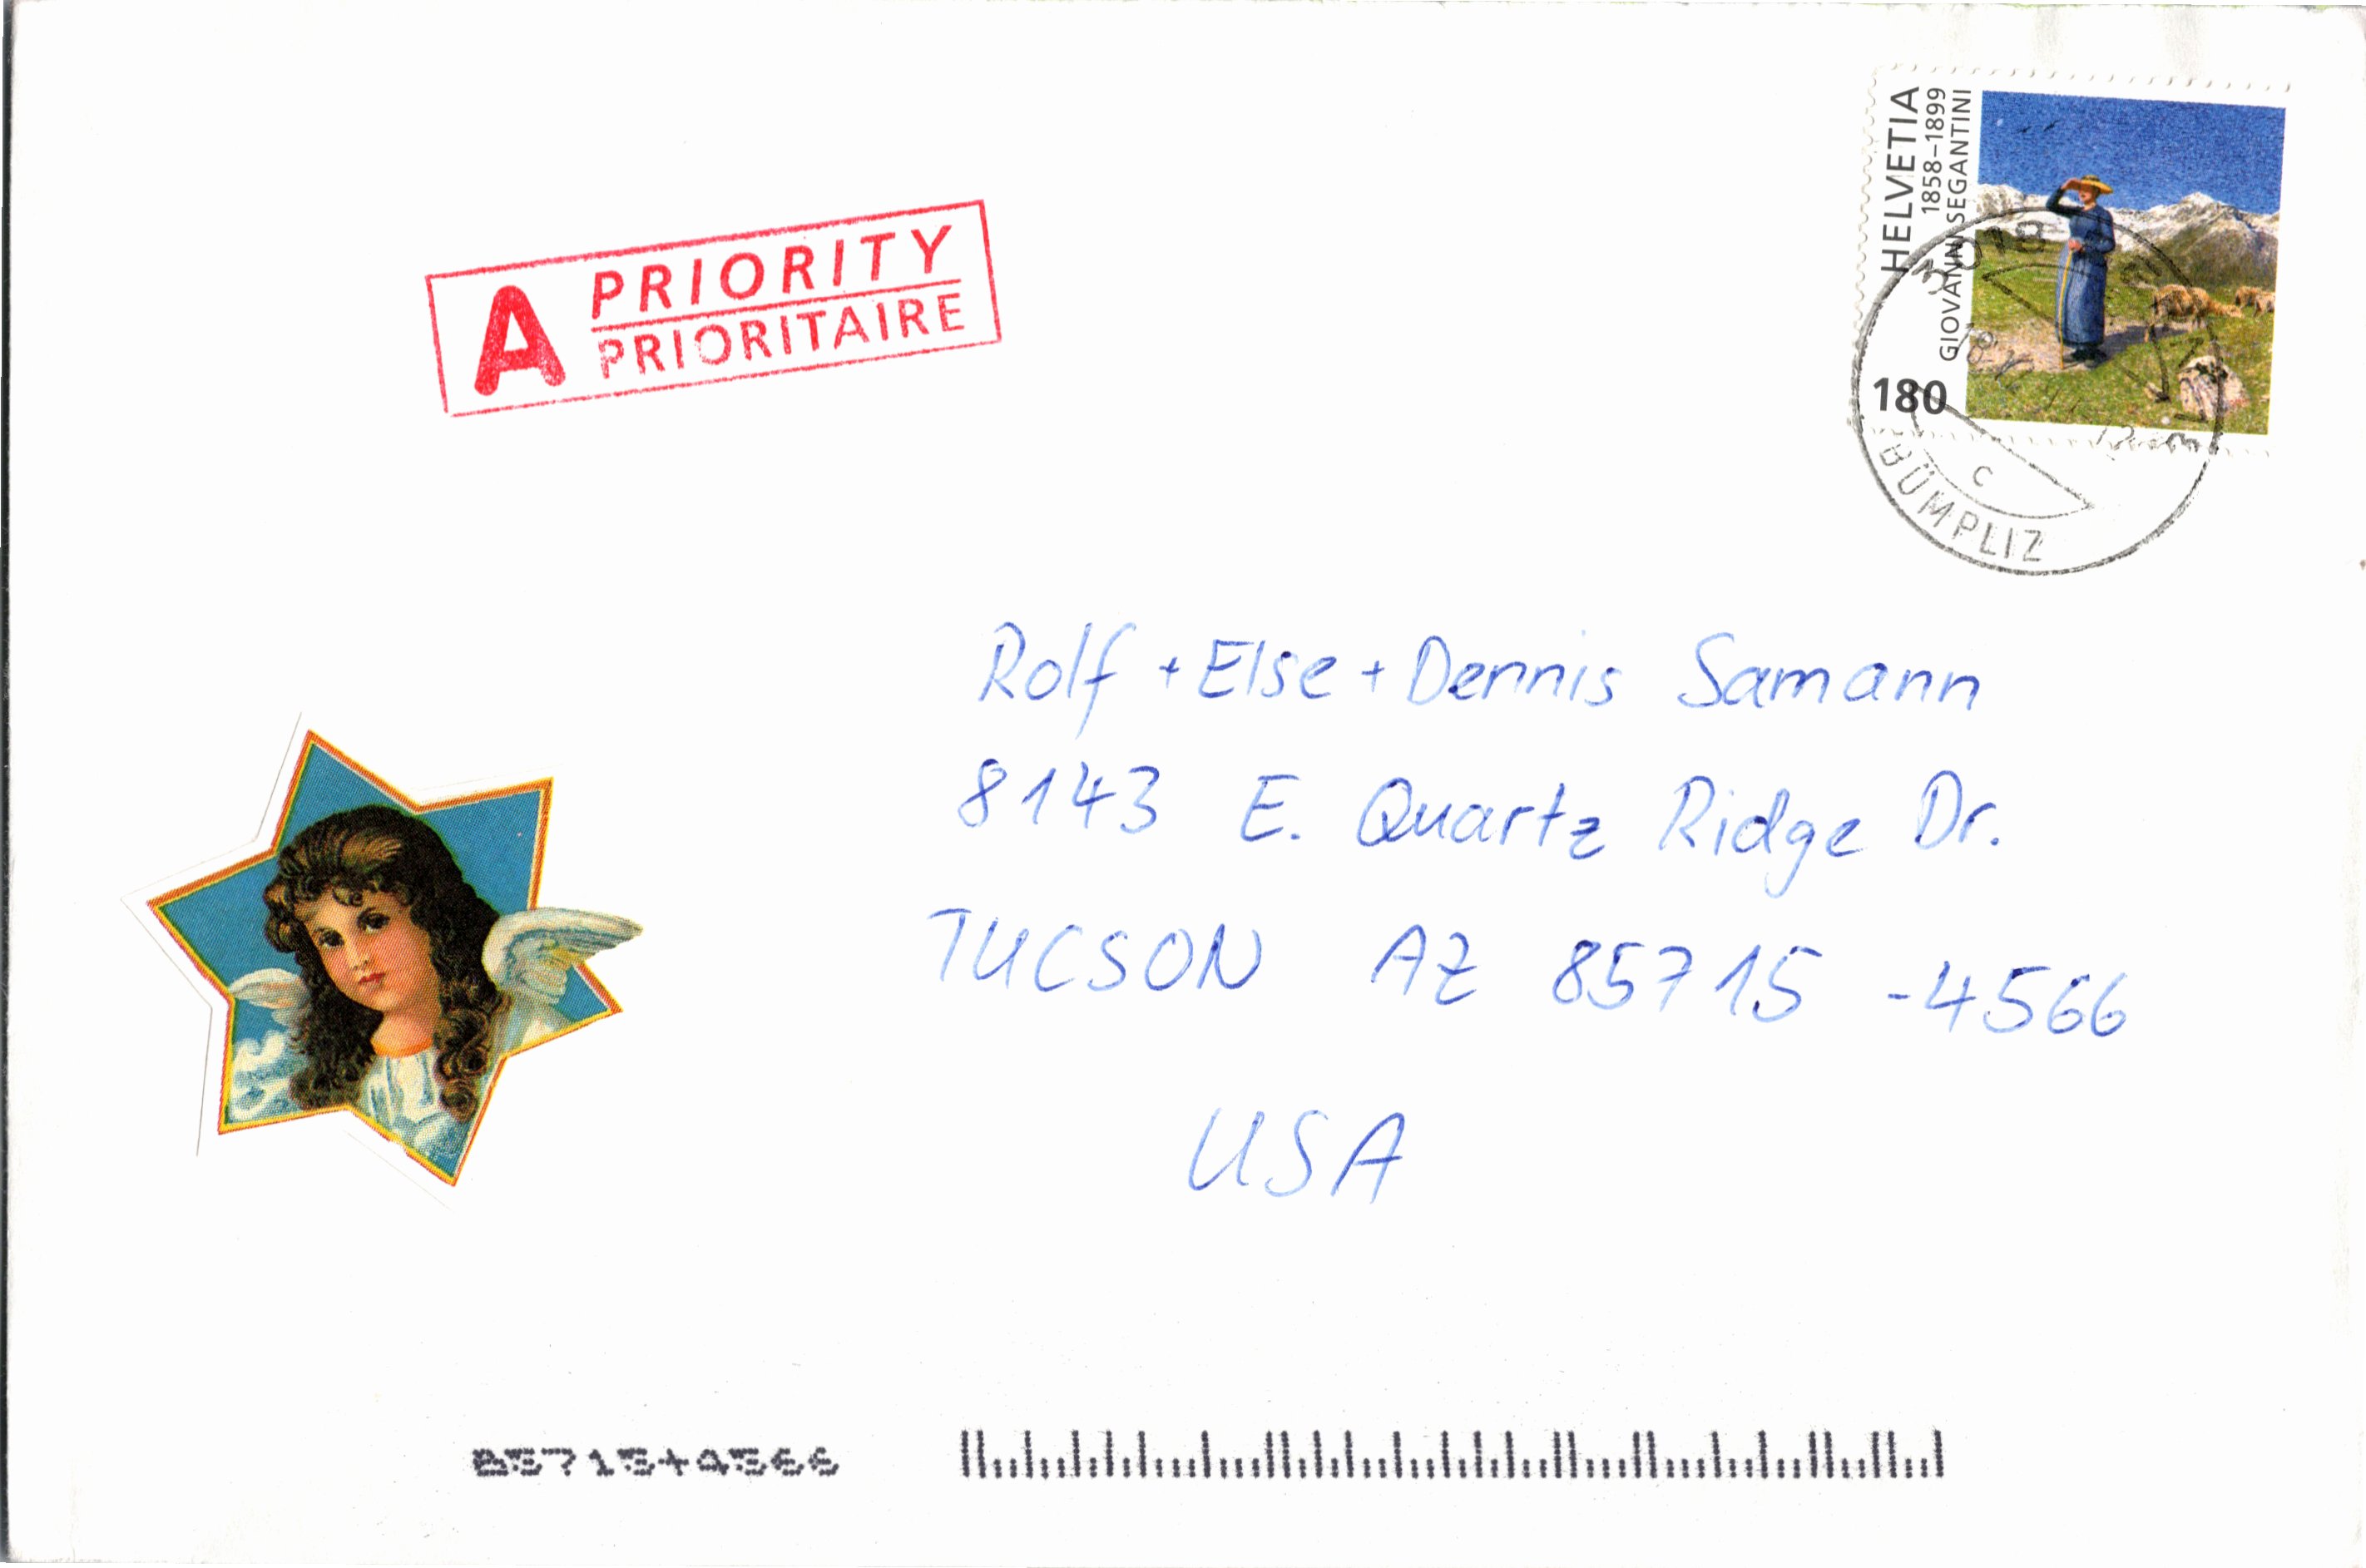 HELVETIA
1858–1899
GIOVANNI SEGANTINI
180
3018 BERN
BÜMPLIZ
C
A PRIORITY
PRIORITAIRE
Rolf + Else + Dennis Samann
8143 E. Quartz Ridge Dr.
TUCSON AZ 85715 -4566
USA
85715+4566